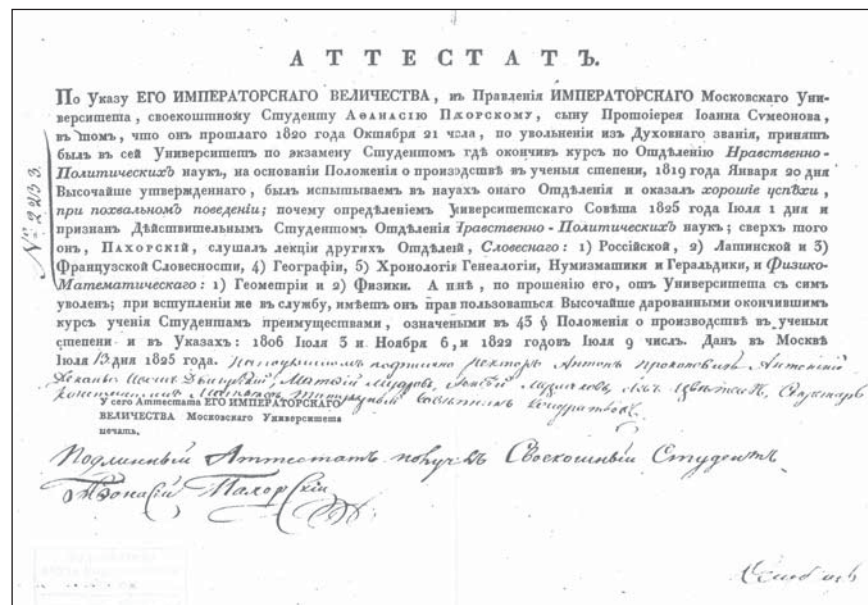 АТТЕСТАТЪ.
По Указу ЕГО ИМПЕРАТОРСКАГО ВЕЛИЧЕСТВА, изъ Правленія ИМПЕРАТОРСКАГО Московскаго Уни-
верситета, своекоштному Студенту Аѳанасію Пахорскому, сыну Протоіерея Іоанна Сѵмеонова,
въ томъ, что онъ прошлаго 1820 года Октября 21 числа, по увольненіи изъ Духовнаго званія, принятъ
былъ въ сей Университетъ по экзамену Студентомъ гдѣ окончивъ курсъ по Отдѣленію Нравственно-
Политическихъ наукъ, на основаніи Положенія о произодствѣ въ ученыя степени, 1819 года Января 20 дня
Высочайше утвержденнаго, былъ испытываемъ въ наукахъ онаго Отдѣленія и оказалъ хорошіе успѣхи,
при похвальномъ поведеніи; почему опредѣленіемъ Университетскаго Совѣта 1825 года Іюля 1 дня и
признанъ Дѣйствительнымъ Студентомъ Отдѣленія Нравственно-Политическихъ наукъ; сверхъ того
онъ, Пахорскій, слушалъ лекціи другихъ Отдѣленій, Словеснаго: 1) Россійской, 2) Латинской и 3)
Французской Словесности, 4) Географіи, 5) Хронологіи Генеалогіи, Нумизматики и Геральдики, и Физико-
Математическаго: 1) Геометріи и 2) Физики. А нынѣ, по прошенію его, отъ Университета съ симъ
уволенъ; при вступленіи же въ службу, имѣетъ онъ право пользоваться Высочайше дарованными окончившимъ
курсъ ученія Студентамъ преимуществами, означеными въ 43 § Положенія о производствѣ въ ученыя
степени и въ Указахъ: 1806 Іюля 3 и Ноября 6, и 1822 годовъ Іюля 9 числъ. Данъ въ Москвѣ
Іюля 13 дня 1825 года. подписано Ректоръ Антонъ Прокоповичъ Антонскій
Деканы Двигубскій, Мудровъ,
У сего Аттестата ЕГО ИМПЕРАТОРСКАГО
ВЕЛИЧЕСТВА Московскаго Университета
печать.
Подлинный Аттестатъ получилъ Своекошный Студентъ
Аѳонасій Пахорскій
№ 2233.